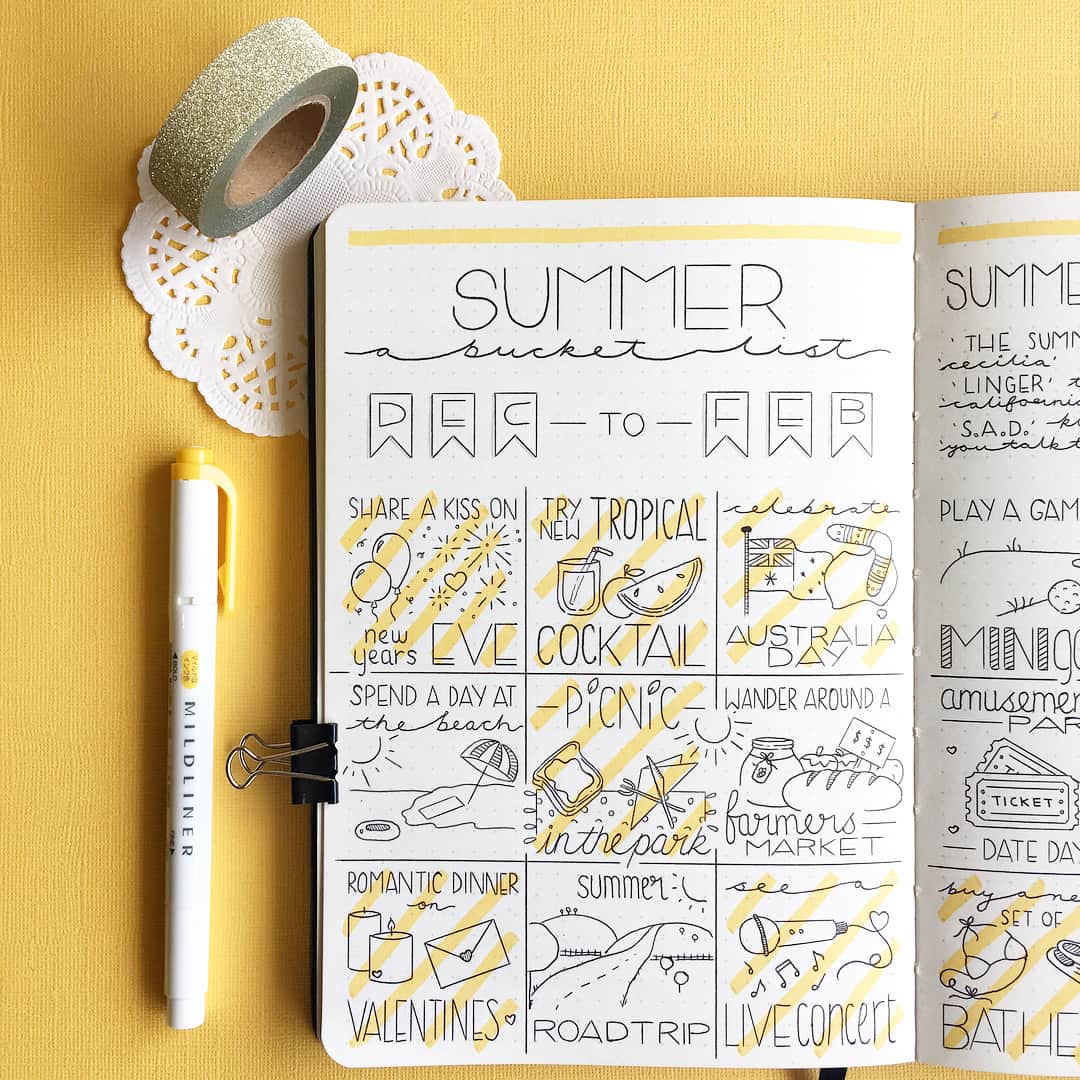 SUMMER
a bucket list
DEC — TO — FEB
SHARE A KISS ON
new
years EVE
TRY
NEW TROPICAL
COCKTAIL
celebrate
AUSTRALIA
DAY
SPEND A DAY AT
the beach
- PICNIC -
in the park
WANDER AROUND A
$$$
farmers
MARKET
ROMANTIC DINNER
on
VALENTINES
summer
ROADTRIP
see a
LIVE concert
SUMME
'THE SUMM
cecilia'
'LINGER'
california
'S.A.D.'
you talk t
PLAY A GAM
MINIGO
amusemen
PAR
TICKET
DATE DAY
buy a ne
SET OF
BATHE
MILDLINER
BOLD